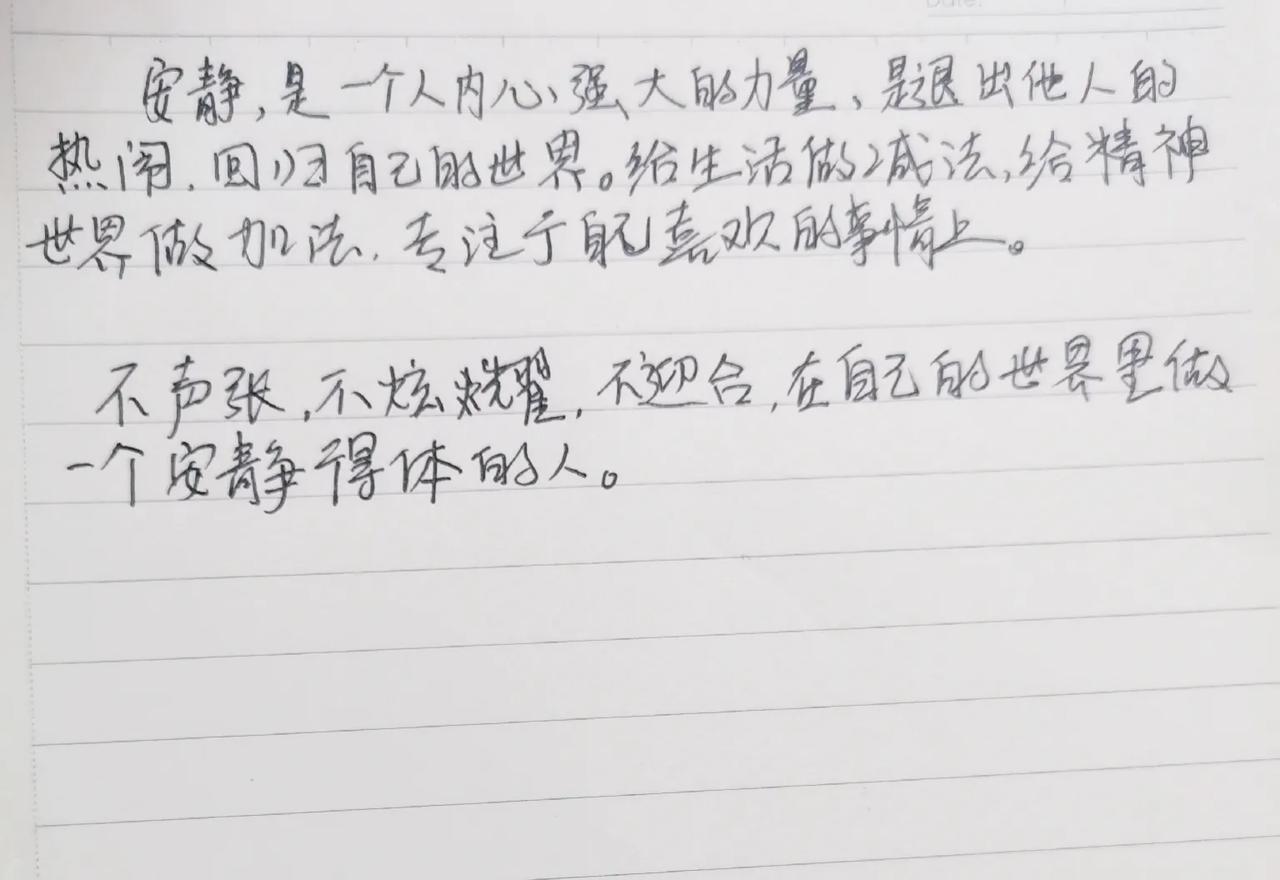 安静,是一个人内心强大的力量、是退出他人的
热闹,回归自己的世界。给生活做减法,给精神
世界做加法,专注于自己喜欢的事情上。
不声张,不炫耀,不迎合,在自己的世界里做
一个安静得体的人。